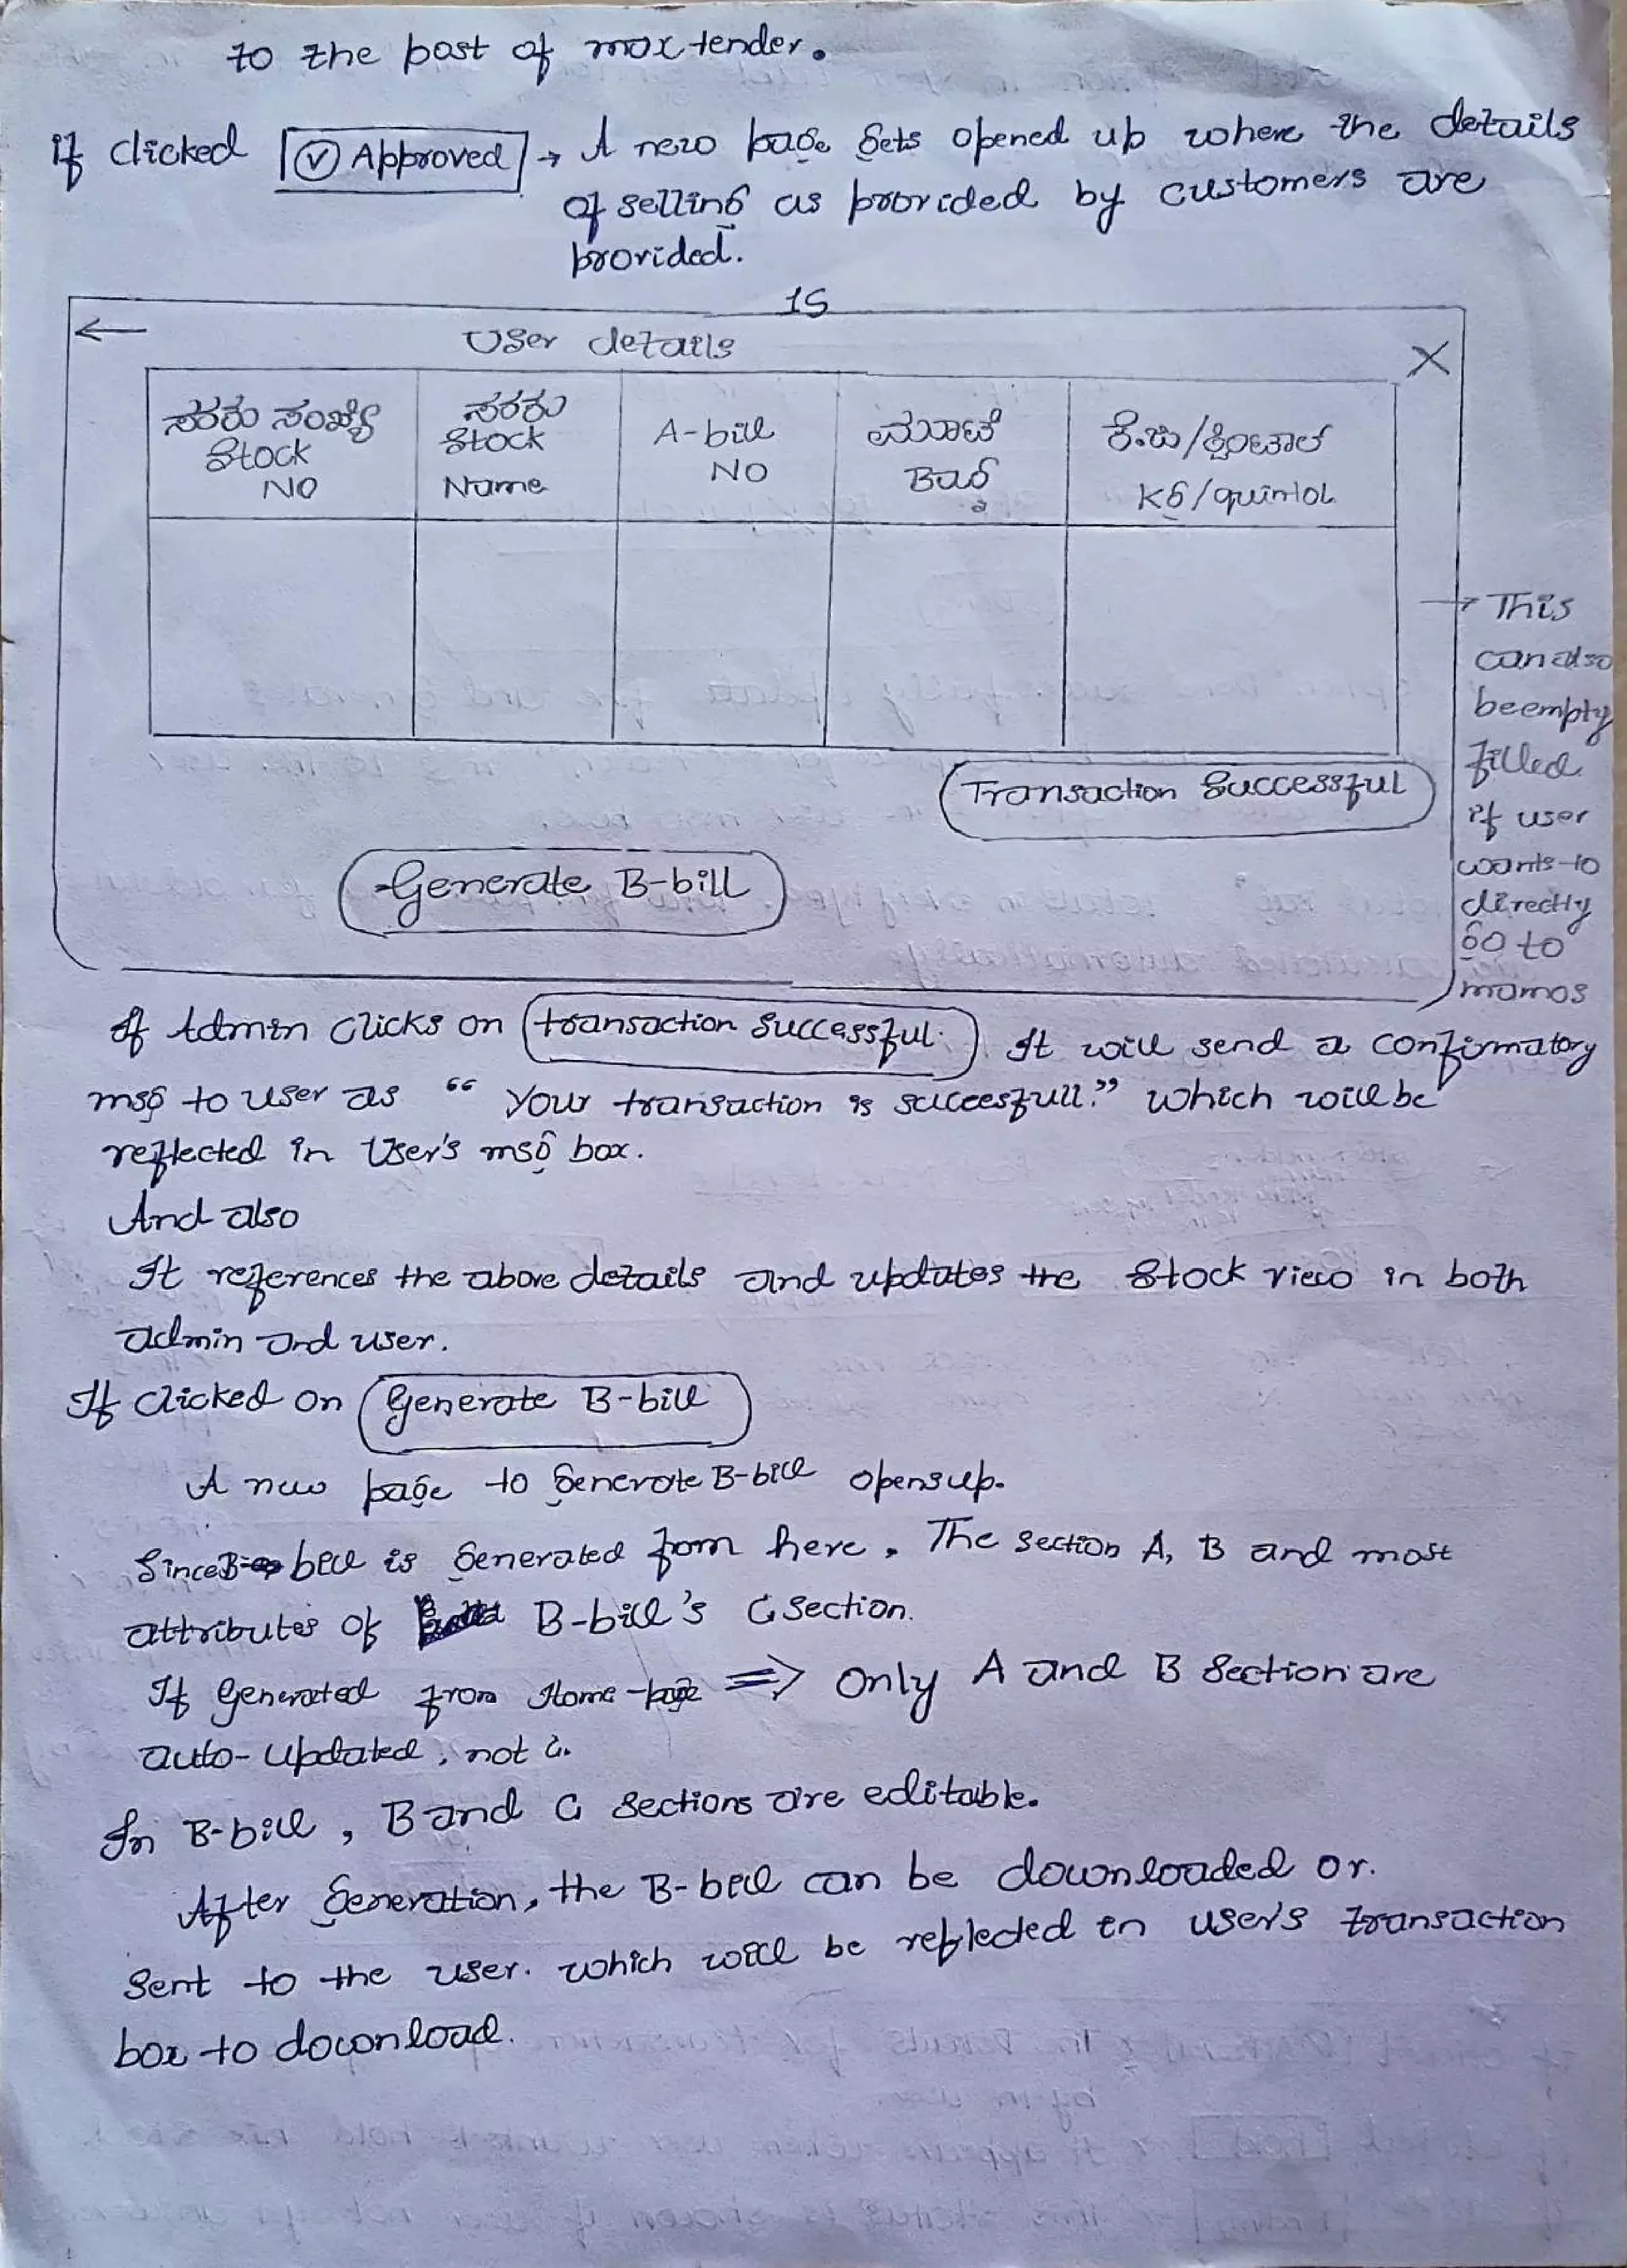 to the post of max tender.
if clicked Approved → A new page gets opened up where the details
of selling as provided by customers are
provided.
15
← User details X
ಸರಕು ಸಂಖ್ಯೆ Stock NO
ಸರಕು Stock Name
A-bill NO
ಮೂಟೆ Bag
ಕೆ.ಜಿ/ಕ್ವಿಂಟಾಲ್ Kg/quintal
→ This
can also
be empty
filled
if user
wants to
directly
go to
mamos
Transaction Successful
Generate B-bill
If Admin clicks on transaction Successful. It will send a confirmatory
msg to user as “ Your transaction is succesfull.” which will be
reflected in User's msg box.
And also
It references the above details and updates the Stock view in both
admin and user.
If clicked on Generate B-bill
A new page to generate B-bill opens up.
Since B- bill is generated from here, The section A, B and most
attributes of B-bill's C Section.
If Generated from Home-page ⇒ Only A and B Section are
auto-updated, not C.
In B-bill, B and C Sections are editable.
After Generation, the B-bill can be downloaded or.
Sent to the user. which will be reflected in user's transaction
box to download.